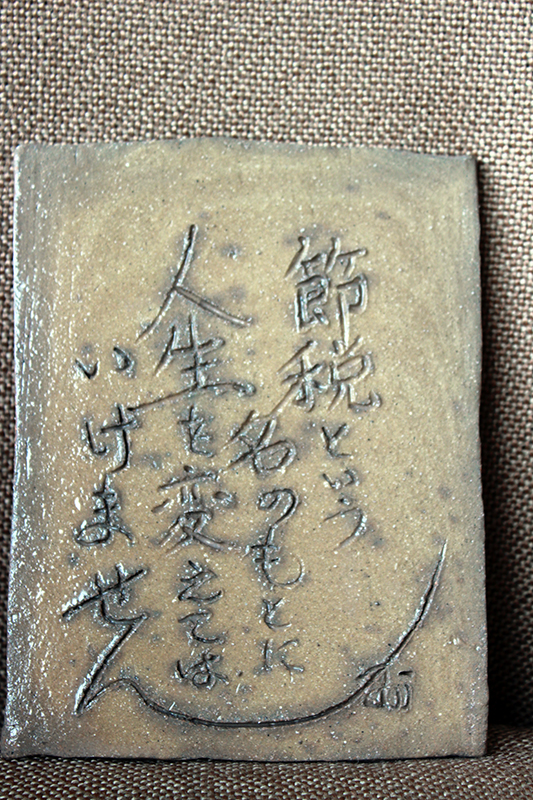 節税という
名のもとに
人生を変えては
いけません